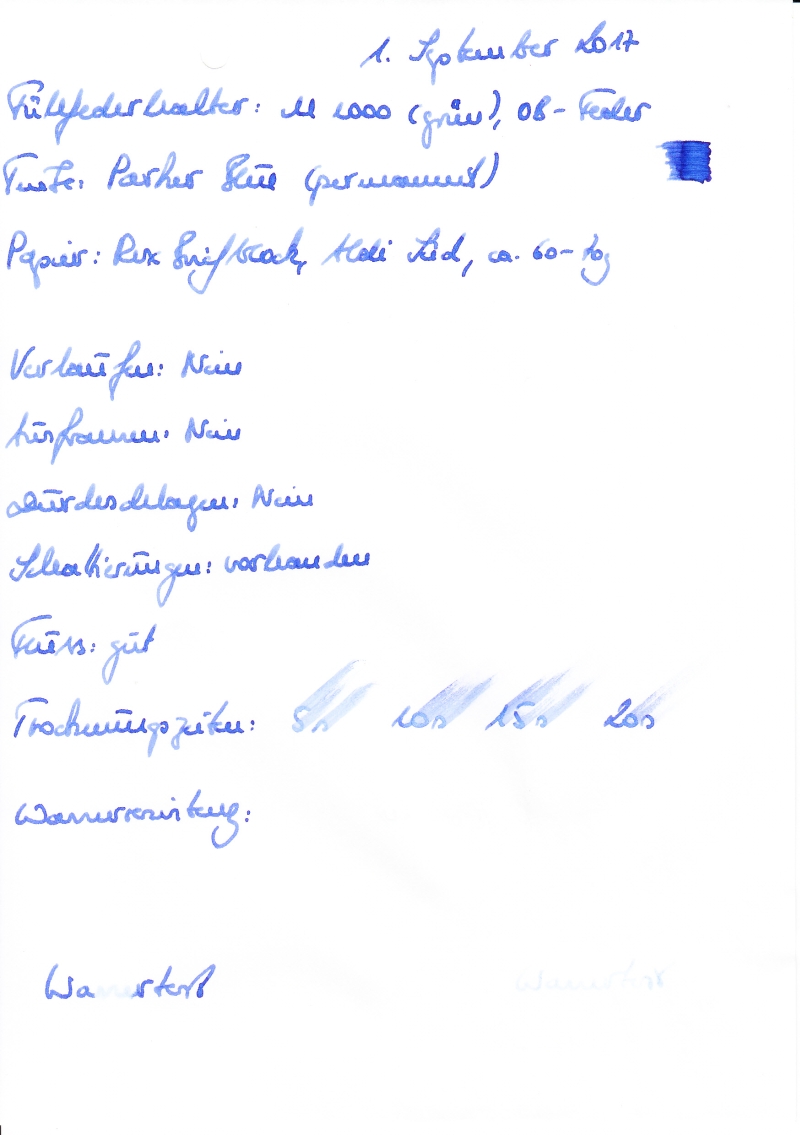 1. September 2017
Füllfederhalter: M 1000 (grün), OB-Feder
Tinte: Parker Blue (permanent)
Papier: Rex Briefblock, Aldi Süd, ca. 60-70g
Verlaufen: Nein
Ausfransen: Nein
Durchschlagen: Nein
Schattierungen: vorhanden
Fluss: gut
Trocknungszeiten: 5s 10s 15s 20s
Wasserresistenz:
Wassertest Wassertest